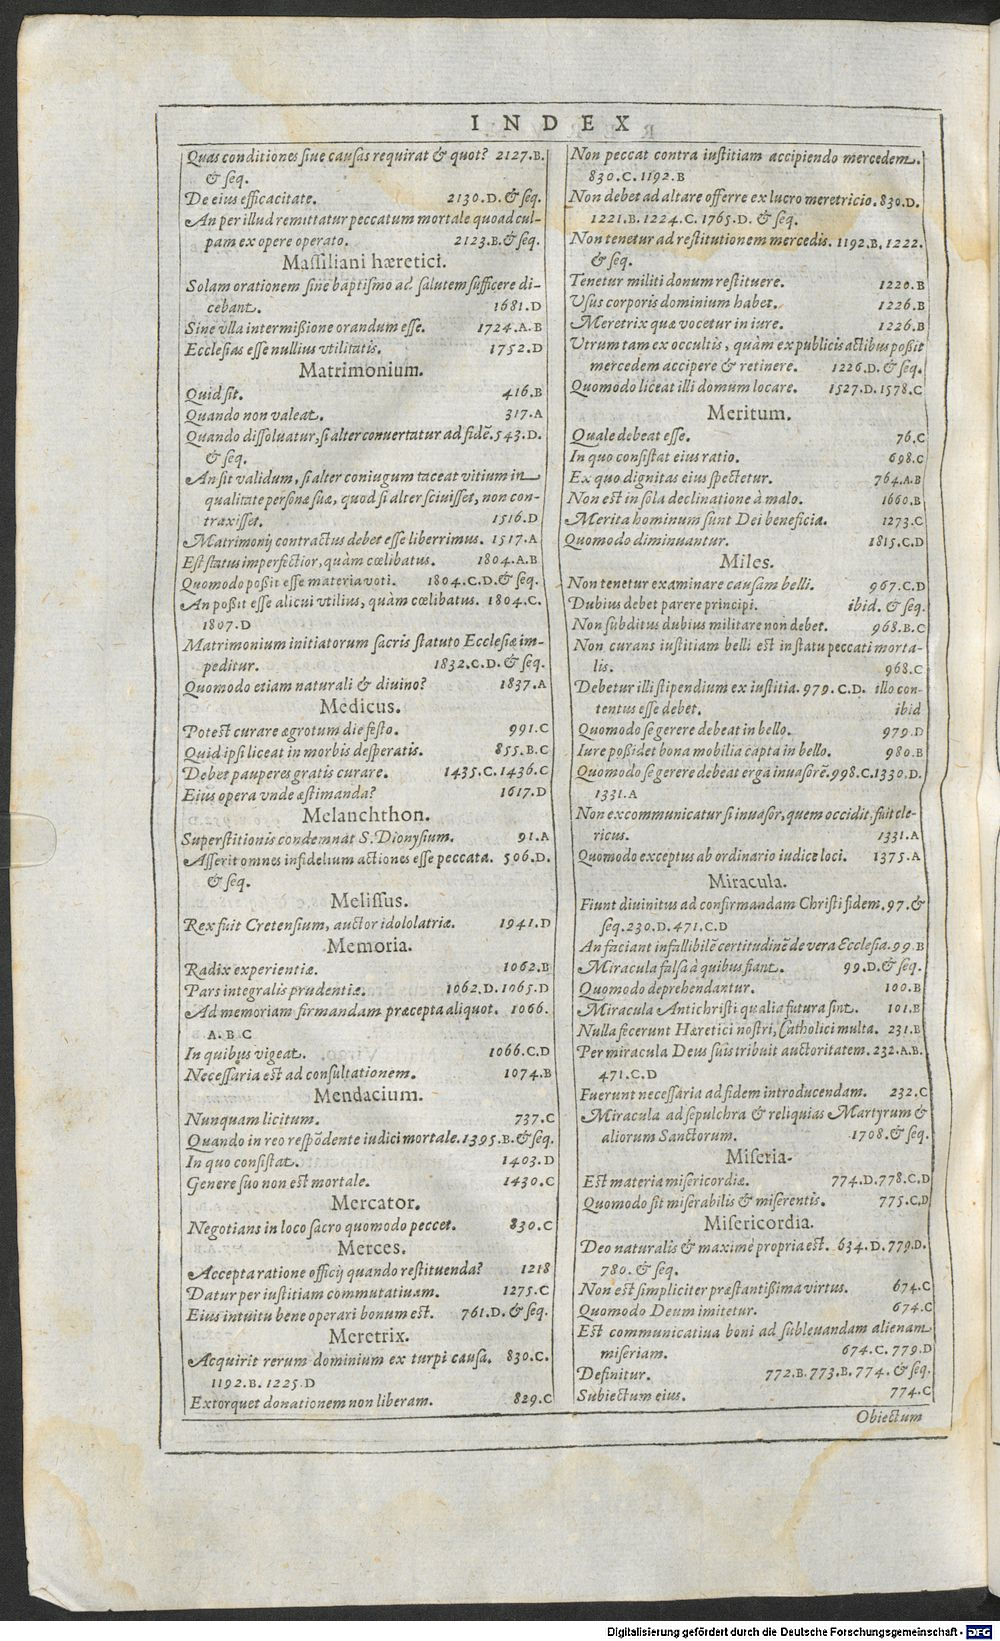 INDEX
Quas conditiones siue causas requirat & quot? 2127.B.
& seq.
De eius efficacitate. 2130.D. & seq.
An per illud remittatur peccatum mortale quoad cul-
pam ex opere operato. 2123.B. & seq.
Massiliani hæretici.
Solam orationem sine baptismo ad salutem sufficere di-
cebant. 1681.D
Sine vlla intermißione orandum esse. 1724.A.B
Ecclesias esse nullius vtilitatis. 1752.D
Matrimonium.
Quid sit. 416.B
Quando non valeat. 317.A
Quando dissoluatur, si alter conuertatur ad fidē. 543.D.
& seq.
An sit validum, si alter coniugum taceat vitium in
qualitate personæ suæ, quod si alter sciuisset, non con-
traxisset. 1516.D
Matrimonij contractus debet esse liberrimus. 1517.A
Est status imperfectior, quàm cœlibatus. 1804.A.B
Quomodo poßit esse materia voti. 1804.C.D. & seq.
An poßit esse alicui vtilius, quàm cœlibatus. 1804.C.
1807.D
Matrimonium initiatorum sacris statuto Ecclesiæ im-
peditur. 1832.C.D. & seq.
Quomodo etiam naturali & diuino? 1837.A
Medicus.
Potest curare ægrotum die festo. 991.C
Quid ipsi liceat in morbis desperatis. 855.B.C
Debet pauperes gratis curare. 1435.C. 1436.C
Eius opera vnde æstimanda? 1617.D
Melanchthon.
Superstitionis condemnat S. Dionysium. 91.A
Asserit omnes infidelium actiones esse peccata. 506.D.
& seq.
Melissus.
Rex fuit Cretensium, auctor idololatriæ. 1941.D
Memoria.
Radix experientiæ. 1062.B
Pars integralis prudentiæ. 1062.D. 1065.D
Ad memoriam firmandam præcepta aliquot. 1066.
A.B.C
In quibus vigeat. 1066.C.D
Necessaria est ad consultationem. 1074.B
Mendacium.
Nunquam licitum. 737.C
Quando in reo respōdente iudici mortale. 1395.B. & seq.
In quo consistat. 1403.D
Genere suo non est mortale. 1430.C
Mercator.
Negotians in loco sacro quomodo peccet. 830.C
Merces.
Accepta ratione officij quando restituenda? 1218
Datur per iustitiam commutatiuam. 1275.C
Eius intuitu bene operari bonum est. 761.D. & seq.
Meretrix.
Acquirit rerum dominium ex turpi causa. 830.C.
1192.B. 1225.D
Extorquet donationem non liberam. 829.C
Non peccat contra iustitiam accipiendo mercedem.
830.C. 1192.B
Non debet ad altare offerre ex lucro meretricio. 830.D.
1221.B. 1224.C. 1765.D. & seq.
Non tenetur ad restitutionem mercedis. 1192.B. 1222.
& seq.
Tenetur militi donum restituere. 1220.B
Vsus corporis dominium habet. 1226.B
Meretrix quæ vocetur in iure. 1226.B
Vtrum tam ex occultis, quàm ex publicis actibus poßit
mercedem accipere & retinere. 1226.D. & seq.
Quomodo liceat illi domum locare. 1527.D. 1578.C
Meritum.
Quale debeat esse. 76.C
In quo consistat eius ratio. 698.C
Ex quo dignitas eius spectetur. 764.A.B
Non est in sola declinatione à malo. 1660.B
Merita hominum sunt Dei beneficia. 1273.C
Quomodo diminuantur. 1815.C.D
Miles.
Non tenetur examinare causam belli. 967.C.D
Dubius debet parere principi. ibid. & seq.
Non subditus dubius militare non debet. 968.B.C
Non curans iustitiam belli est in statu peccati morta-
lis. 968.C
Debetur illi stipendium ex iustitia. 979.C.D. illo con-
tentus esse debet. ibid
Quomodo se gerere debeat in bello. 979.D
Iure poßidet bona mobilia capta in bello. 980.B
Quomodo se gerere debeat erga inuasorē. 998.C. 1330.D.
1331.A
Non excommunicatur si inuasor, quem occidit, fuit cle-
ricus. 1331.A
Quomodo exceptus ab ordinario iudice loci. 1375.A
Miracula.
Fiunt diuinitus ad confirmandam Christi fidem. 97. &
seq. 230.D. 471.C.D
An faciant infallibilē certitudinē de vera Ecclesia. 99.B
Miracula falsa à quibus fiant. 99.D. & seq.
Quomodo deprehendantur. 100.B
Miracula Antichristi qualia futura sint. 101.B
Nulla fecerunt Hæretici nostri, Catholici multa. 231.B
Per miracula Deus suis tribuit auctoritatem. 232.A.B.
471.C.D
Fuerunt necessaria ad fidem introducendam. 232.C
Miracula ad sepulchra & reliquias Martyrum &
aliorum Sanctorum. 1708. & seq.
Miseria.
Est materia misericordiæ. 774.D. 778.C.D
Quomodo sit miserabilis & miserentis. 775.C.D
Misericordia.
Deo naturalis & maximè propria est. 634.D. 779.D.
780. & seq.
Non est simpliciter præstantißima virtus. 674.C
Quomodo Deum imitetur. 674.C
Est communicatiua boni ad subleuandam alienam
miseriam. 674.C. 779.D
Definitur. 772.B. 773.B. 774. & seq.
Subiectum eius. 774.C
Obiectum
Digitalisierung gefördert durch die Deutsche Forschungsgemeinschaft - DFG